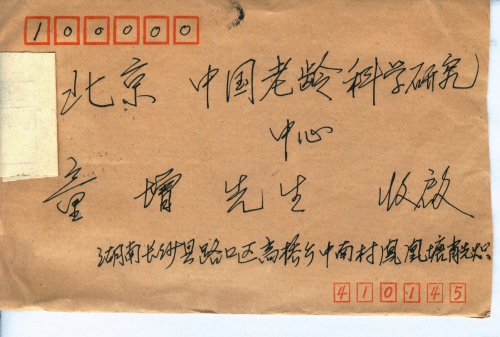 100000
北京 中国老龄科学研究
中心
童增 先生 收启
湖南长沙县路口区高桥乡中南村凤凰塘
410145